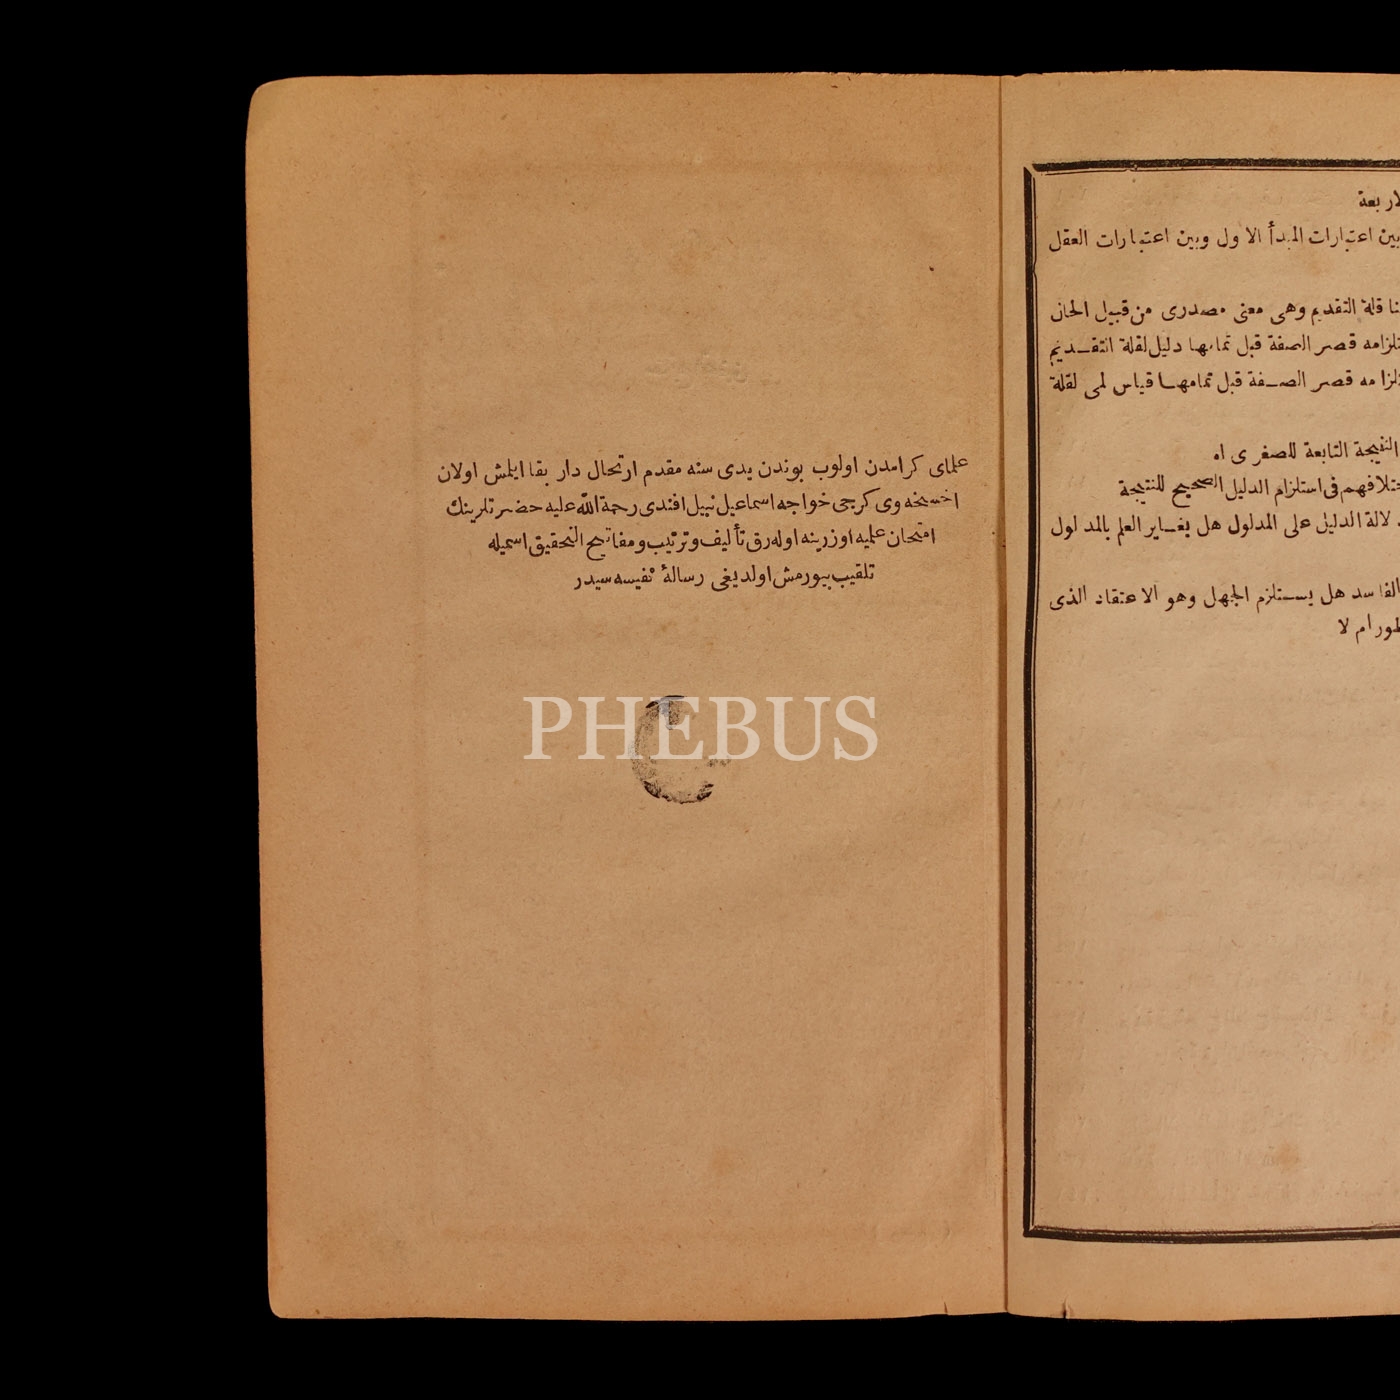 علمای کرامدن اولوب بوندن یدی سنه مقدم ارتحال دار بقا ایلمش اولان
اخسخه‌وی کرجی خواجه اسماعیل نبیل افندی رحمة الله علیه حضرتلرینك
امتحان علمیه اوزرینه اوله‌رق تألیف و ترتیب و مفاتیح التحقیق اسمیله
تلقیب بیورمش اولدیغی رسالهٔ نفیسه سیدر
PHEBUS
بین اعتبارات المبدأ الاول وبین اعتبارات العقل
قلة التقدیم وهی معنی مصدری من قبیل الحال
قصر الصفة قبل تمامها دلیل لقلة التقدیم
قصر الصفة قبل تمامها قیاس لمی لقلة
النتیجة التابعة للصغری اه
فی استلزام الدلیل الصحیح للنتیجة
لالة الدلیل علی المدلول هل یغایر العلم بالمدلول
الفاسد هل یستلزم الجهل وهو الاعتقاد الذی
ام لا